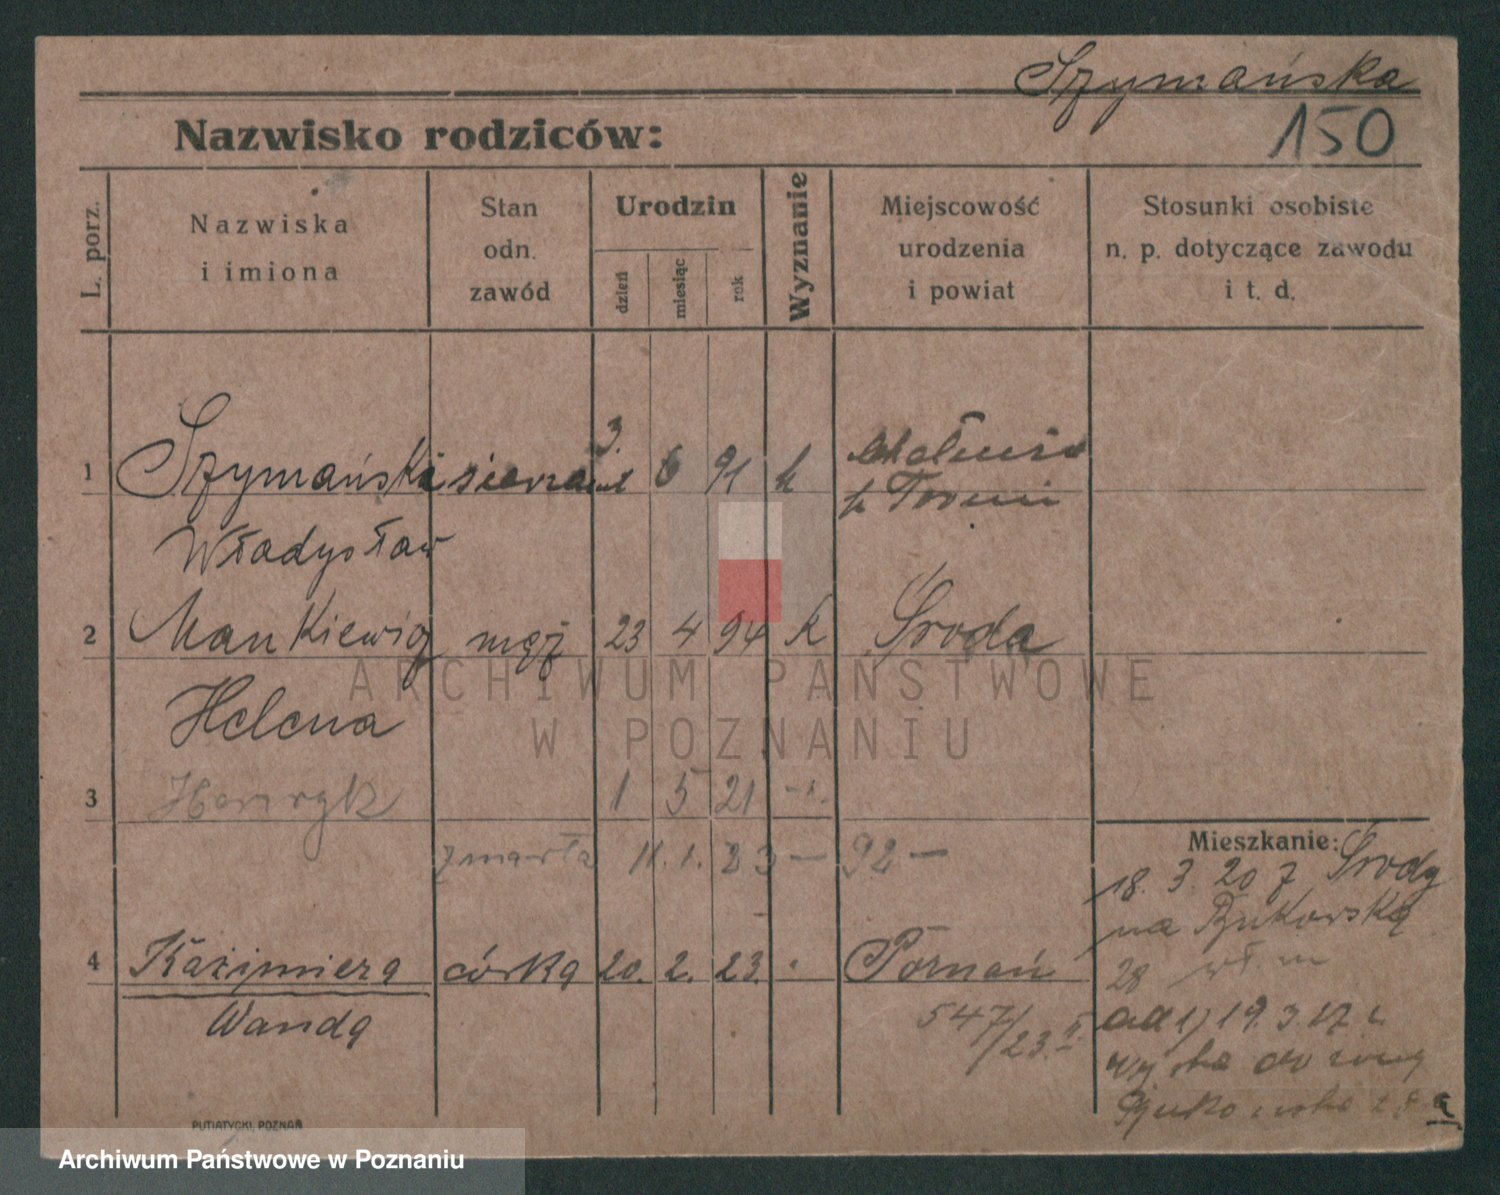 Szymańska
150
Nazwisko rodziców:
L. porz.
Nazwiska
i imiona
Stan
odn.
zawód
Urodzin
dzień
miesiąc
rok
Wyznanie
Miejscowość
urodzenia
i powiat
Stosunki osobiste
n. p. dotyczące zawodu
i t. d.
1 Szymański 3 6 91 k
Władysław
2 Mankiewicz męż 23 4 94 k Środa
Helena
3 Henryk 1 5 21
zmarła 11. 1. 23 — 92 —
4 Kazimiera córka 20. 2. 23. Poznań
Wanda
547/23. II
Mieszkanie:
18. 3. 20 z Środy
na Bukowską
28
ad 1) 19. 3. 17 z
ARCHIWUM PAŃSTWOWE
W POZNANIU
PUTIATYCKI, POZNAŃ
Archiwum Państwowe w Poznaniu